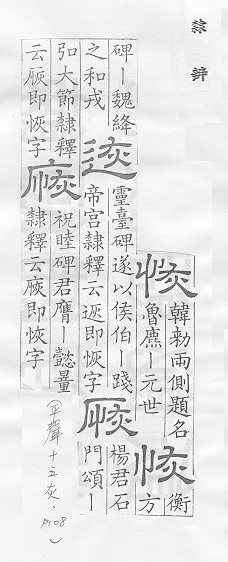 隸辨
恢
韓勑兩側題名
魯麃丨元世
恢
衡
方
碑丨魏絳
之和戎
靈臺碑遂以侯伯丨踐
帝宮隸釋云即恢字
楊君石
門頌丨
弘大節隸釋
云即恢字
祝睦碑君膺丨懿量
隸釋云即恢字
(平聲十五灰, P108)